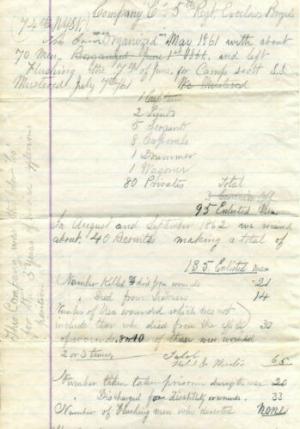 74th NYSV,
Company C. 5th Regt. Excelsior Brigade
Organized May 1861 with about
70 Men, and left
Flushing the 7th of June, for Camp Scott S.I.
Mustered July 7th/61
1 Captain
2 Lieuts
5 Sergeants
8 Corporals
1 Drummer
1 Wagoner
80 Privates Total
95 Enlisted Men
In August and September 1862 we
about 40 Recruits making a total of
135 Enlisted men
Number Killed & died from wounds
" Died from Sickness 14
Number of Men wounded which does not
include those who died from the effects
of wounds of these were wounded
2 or 3 times
Total 65
Number taken prisoners during the war 20
" Discharged for Disability & wounds 33
Number of Flushing men who deserted None
This Company was
3 years